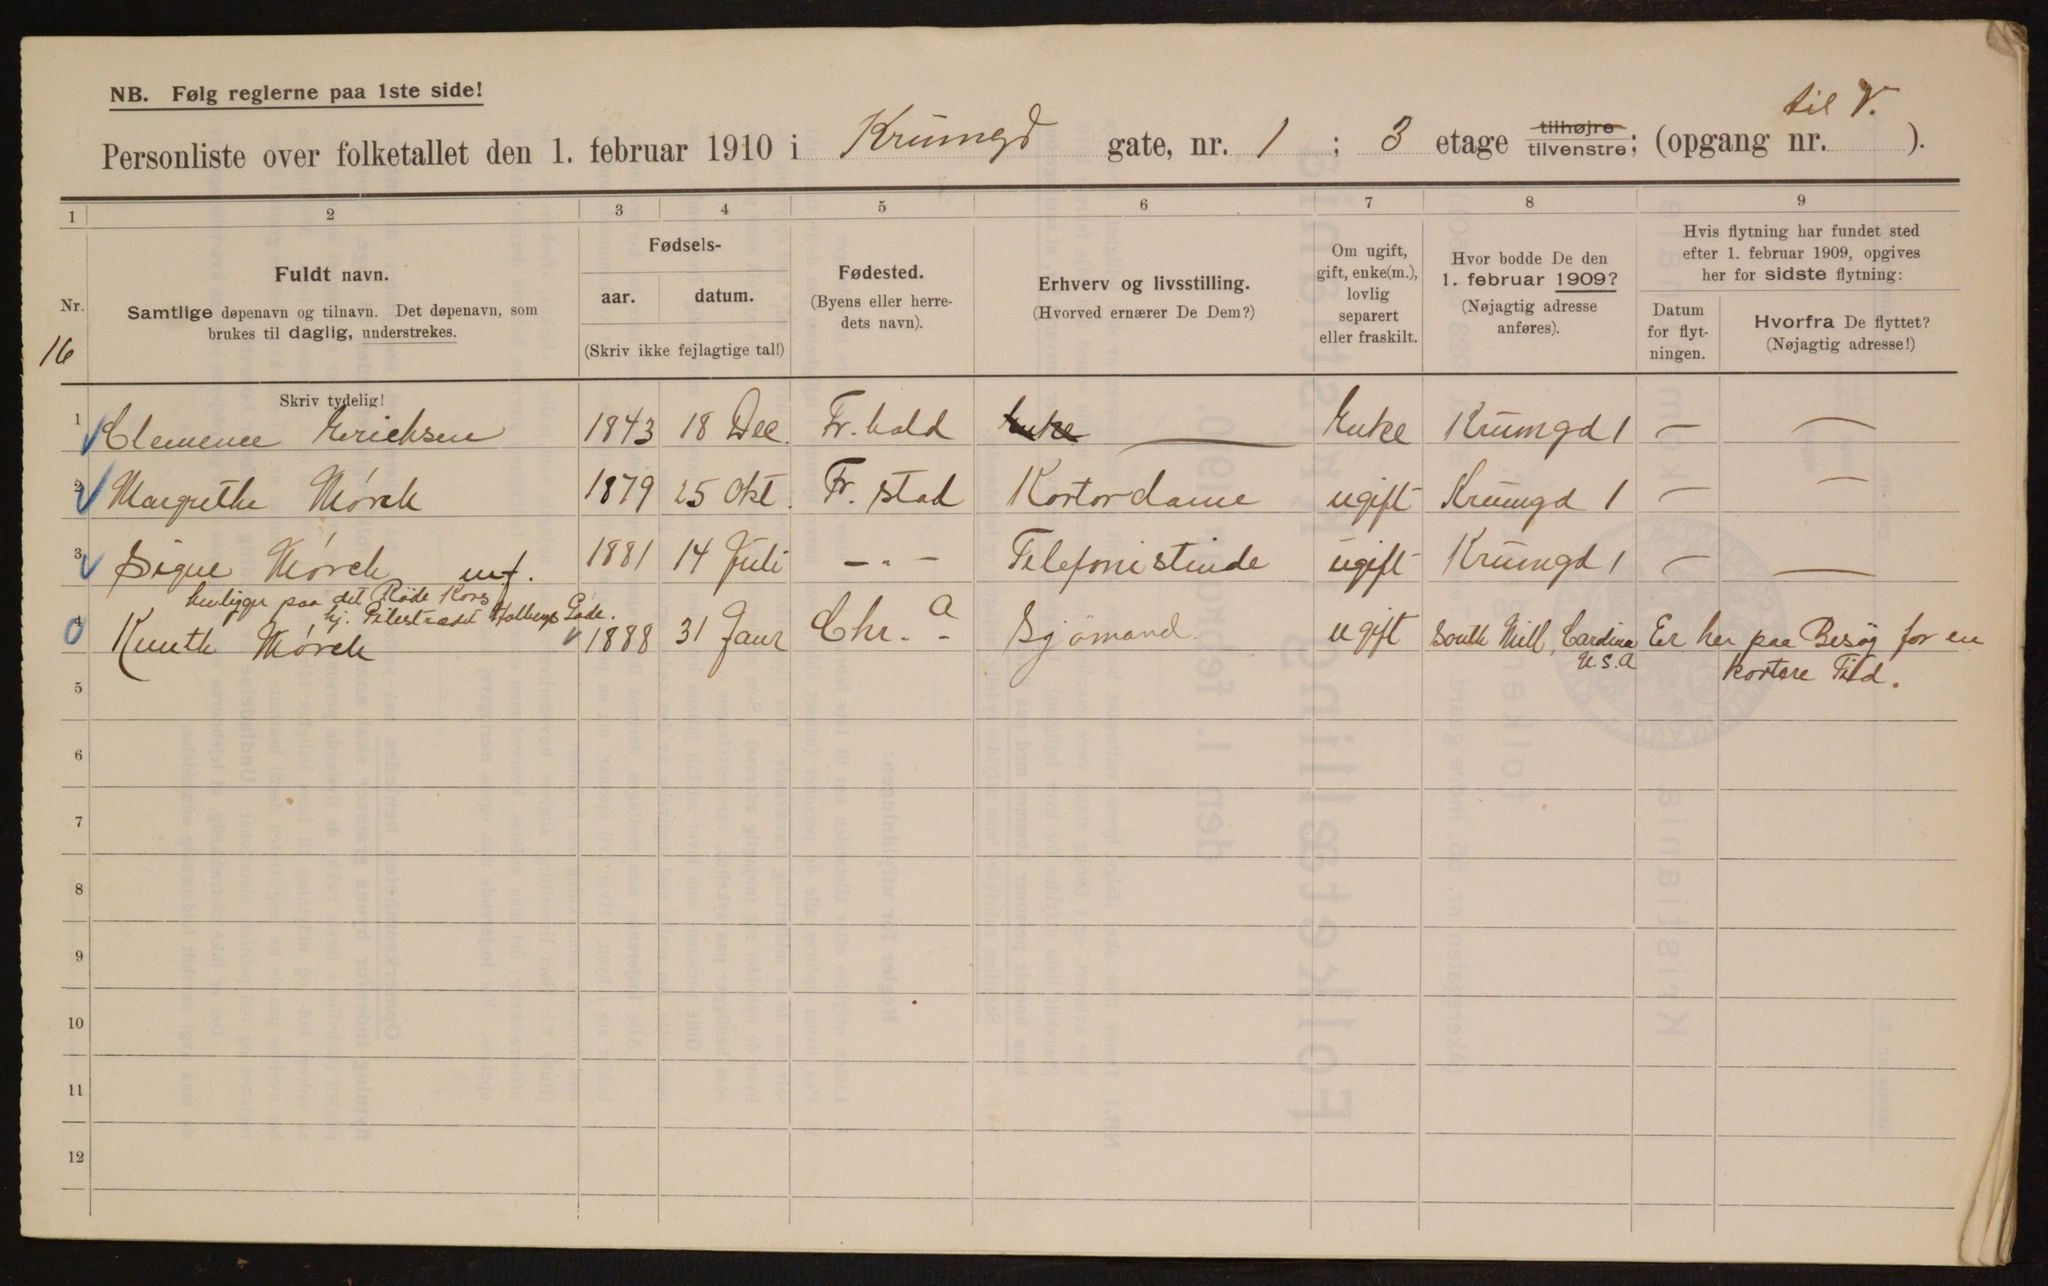 NB. Følg reglerne paa 1ste side!
til V.
Personliste over folketallet den 1. februar 1910 i Krumgd gate, nr. 1 ; 3 etage tilhøjre tilvenstre; (opgang nr. ).
1 2 3 4 5 6 7 8 9
Nr.
16
Fuldt navn.
Samtlige døpenavn og tilnavn. Det døpenavn, som
brukes til daglig, understrekes.
Fødsels-
aar. datum.
(Skriv ikke fejlagtige tal!)
Fødested.
(Byens eller herre-
dets navn).
Erhverv og livsstilling.
(Hvorved ernærer De Dem?)
Om ugift,
gift, enke(m.),
lovlig
separert
eller fraskilt.
Hvor bodde De den
1. februar 1909?
(Nøjagtig adresse
anføres).
Hvis flytning har fundet sted
efter 1. februar 1909, opgives
her for sidste flytning:
Datum
for flyt-
ningen.
Hvorfra De flyttet?
(Nøjagtig adresse!)
Skriv tydelig!
1 Clemence Erichsen 1843 18 Dec. Fr.hald Enke — Enke Krumgd 1 — —
2 Margrethe Mørch 1879 25 Okt. Fr. stad Kontordame ugift Krumgd 1 — —
3 Signe Mørch mf. 1881 14 Juli — " — Telefonistinde ugift Krumgd 1 — —
henligger paa det Røde Kors
hj. Pilestrædet Holbergs Gade.
4 Knuth Mørch 1888 31 Janr Chr.a Sjömand ugift South Mill, Carolina Er her paa Besøg for en
U.S.A kortere Tid.
5
6
7
8
9
10
11
12